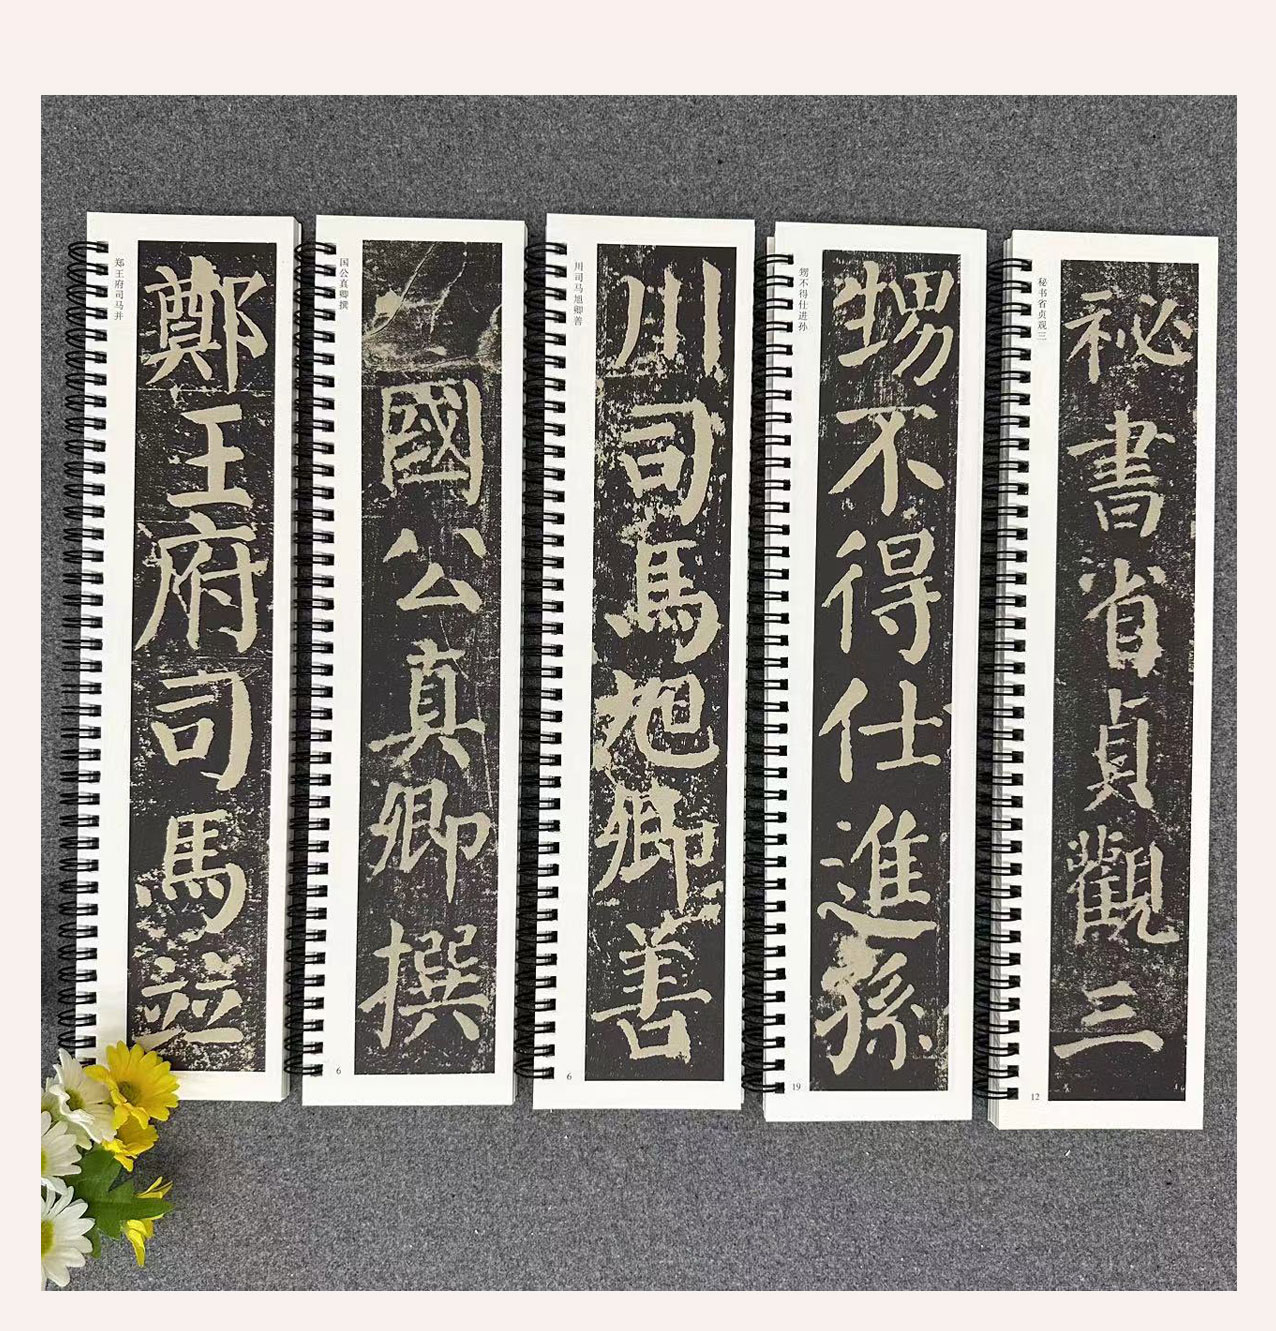 郑王府司马并
鄭王府司馬並
国公真卿撰
國公真卿撰
6
川司马旭卿善
川司馬旭卿善
6
甥不得仕进孙
甥不得仕進孫
19
秘书省贞观三
祕書省貞觀三
12